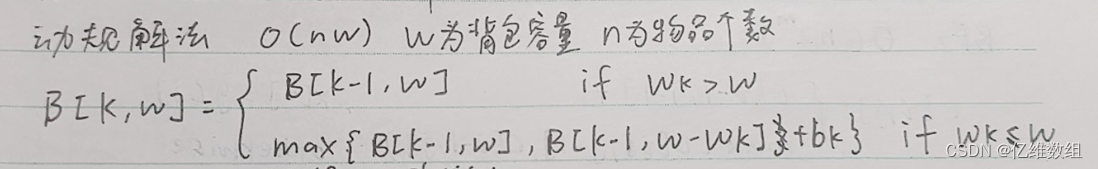 动规解法 O(nw) w为背包容量 n为物品个数
B[k,w] = { B[k-1,w] if wk>w
max{B[k-1,w],B[k-1,w-wk]+bk} if wk≤w
CSDN @亿维数组